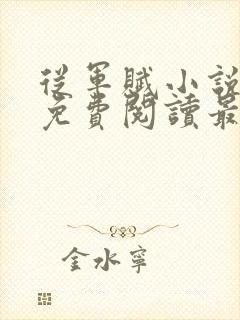 從軍賦小說
免費閱讀最
金水寧